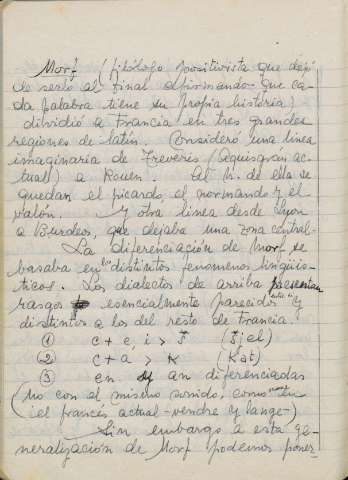 Morf (filólogo positivista que dejó
de serlo al final afirmando que ca-
da palabra tiene su propia historia)
dividió a Francia en tres grandes
regiones de latín. Consideró una línea
imaginaria de Treveris (Aquisgran ac-
tual) a Rouen. Al N. de ella se
quedan el picardo, el normando y el
valón. Y otra linea desde Lyon
a Burdeos, que dejaba una zona central.
La diferenciación de Morf se
basaba en los distintos fenomenos lingüís-
ticos. Los dialectos de arriba presentan
rasgos esencialmente parecidos entre sí y
distintos a los del resto de Francia.
① c + e, i > (Siel)
② c + a > K (Kat)
③ en an diferenciadas
(no con al mismo sonido, como en
el francés actual - vendre y lange-)
Sin embargo a esta ge-
neralización de Morf podemos poner